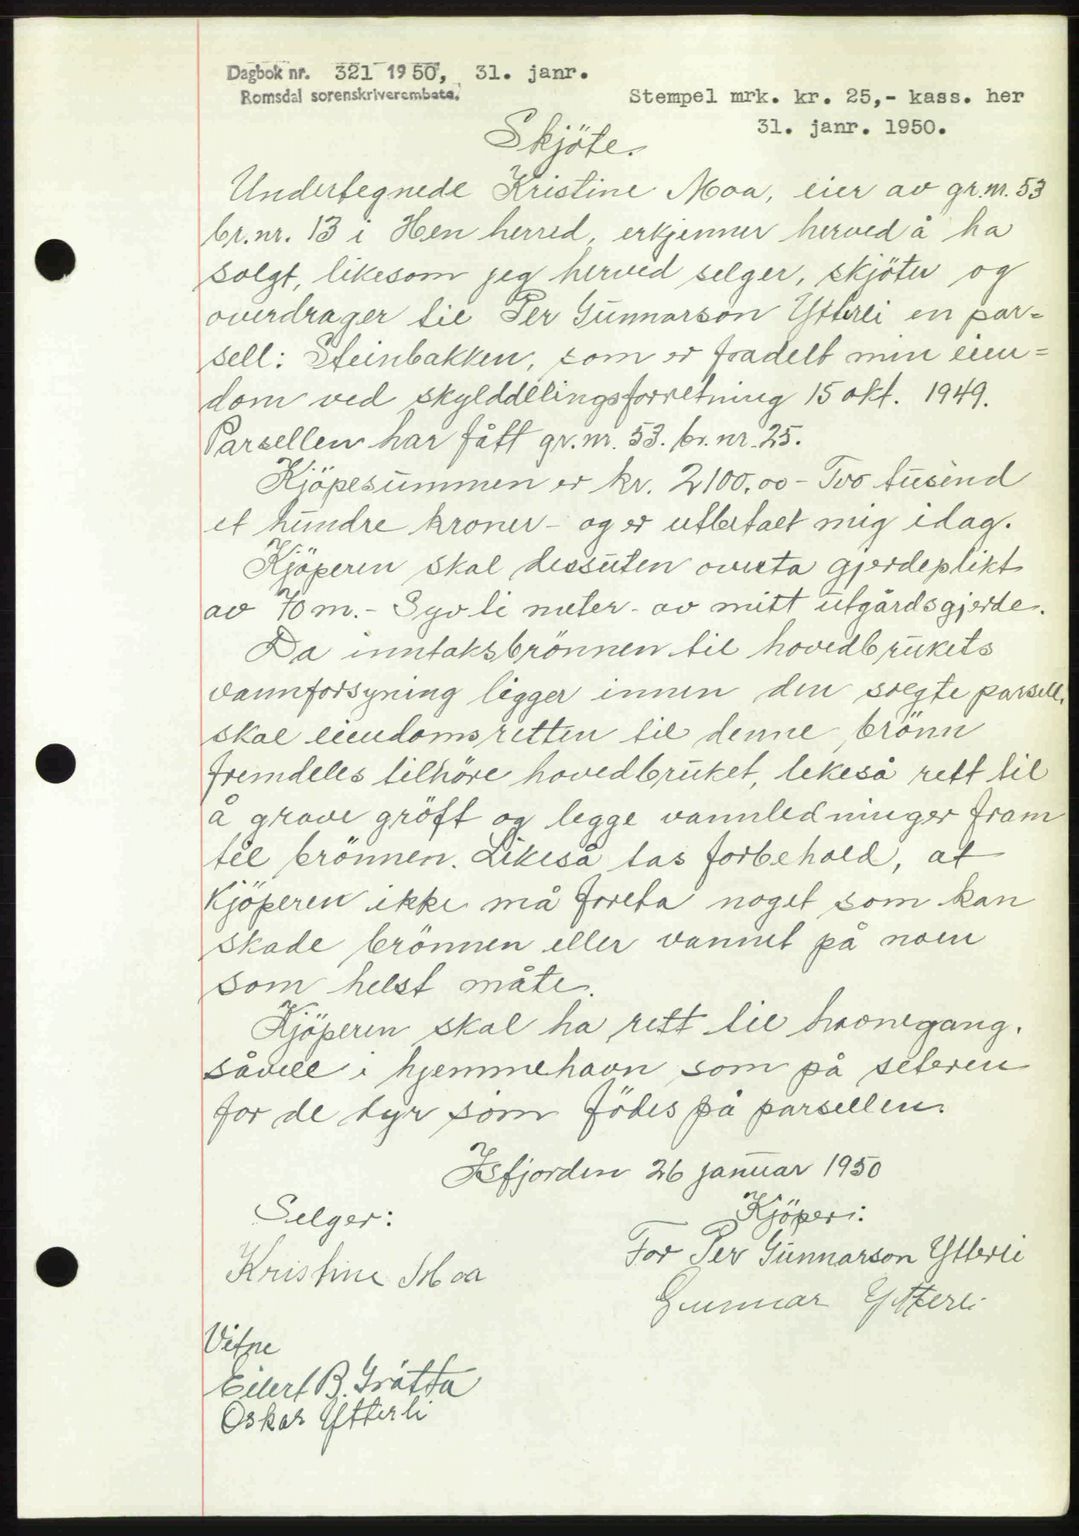 Dagbok nr. 321 1950, 31. janr.
Romsdal sorenskriverembete.
Stempel mrk. kr. 25,- kass. her
31. janr. 1950.
Skjöte.
Undertegnede Kristine Moa, eier av gr.nr. 53
br.nr. 13 i Hen herred, erkjenner herved å ha
solgt, likesom jeg herved selger, skjöter og
overdrager til Per Gunnarson Ytterli en par=
sell: Steinbakken, som er fradelt min eien=
dom ved skylddelingsforretning 15 okt. 1949.
Parsellen har fått gr.nr. 53. br.nr. 25.
Kjöpesummen er kr. 2100,00 - Two tusend
et hundre kroner - og er utbetalt mig idag.
Kjöperen skal dessuten overta gjerdeplikt
av 70 m. - Syv ti meter - av mitt utgårdsgjerde.
Da inntaksbrönnen til hovedbrukets
vannforsyning ligger innen den solgte parsell,
skal eiendomsretten til denne brönn
fremdeles tilhöre hovedbruket, lekeså rett til
å grave gröft og legge vannledninger fram
til brönnen. Likeså tas forbehold, at
Kjöperen ikke må foreta noget som kan
skade brönnen eller vannet på noen
som helst måte.
Kjöperen skal ha rett til havnegang.
såvel i hjemmehavn som på seteren
for de dyr som födes på parsellen.
Isfjorden 26 januar 1950
Selger:
Kjöper:
Kristine Moa
For Per Gunnarson Ytterli
Gunnar Ytterli
Vitne
Eilert B. Gråtta
Oskar Ytterli